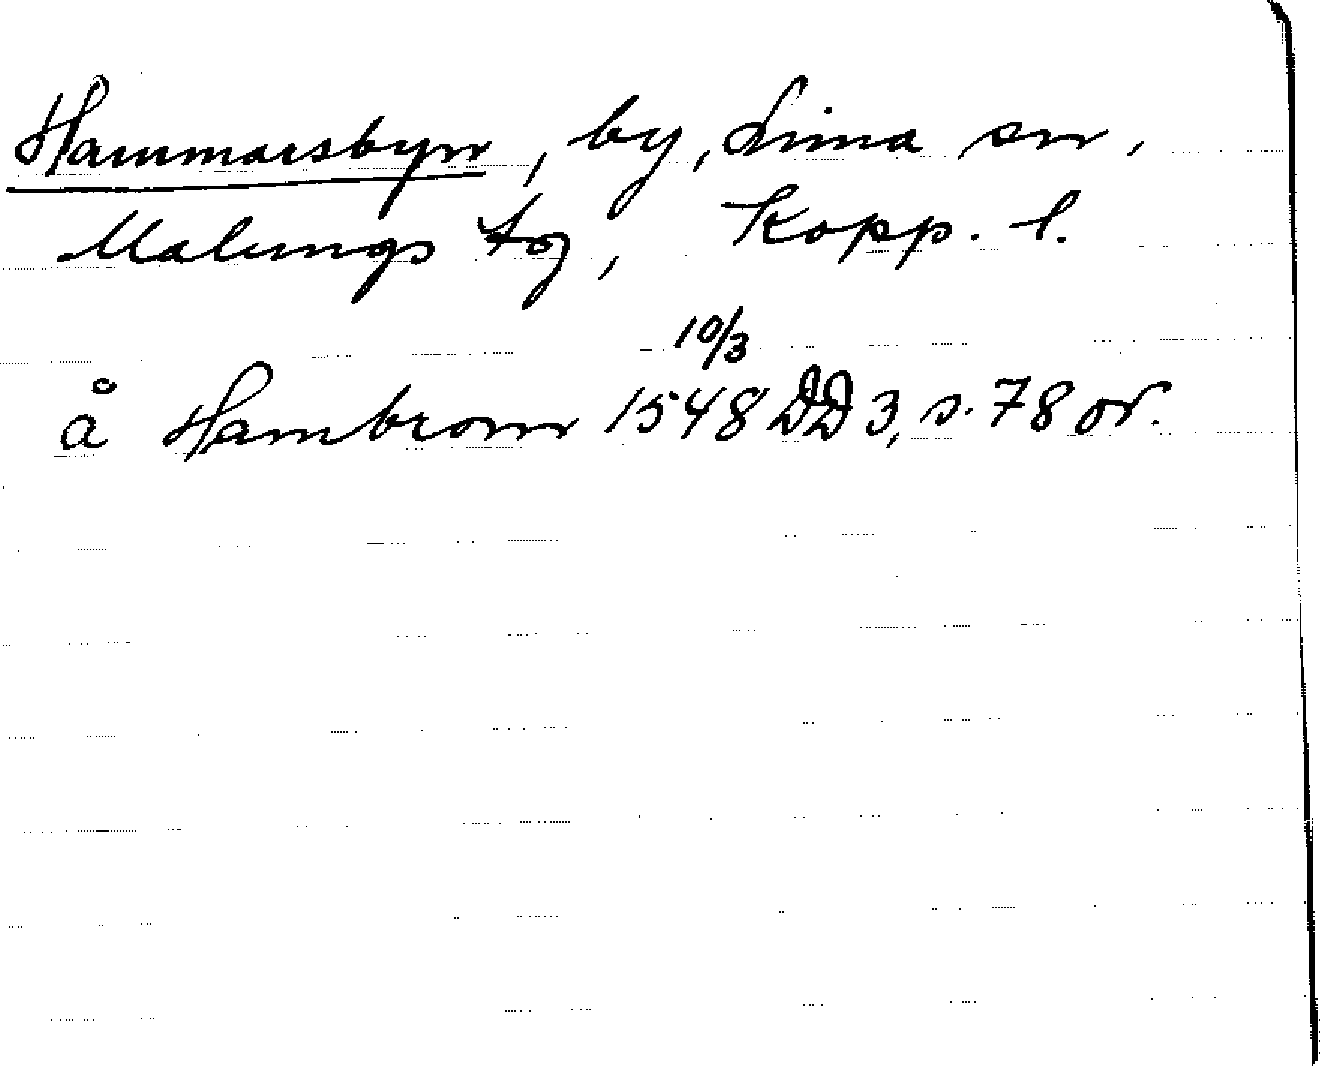 Hammarsbyn, by, Lima sn,
Malungs tg, Kopp. l.
10/3
å Hambrom 1548 DD 3, s. 78 or.